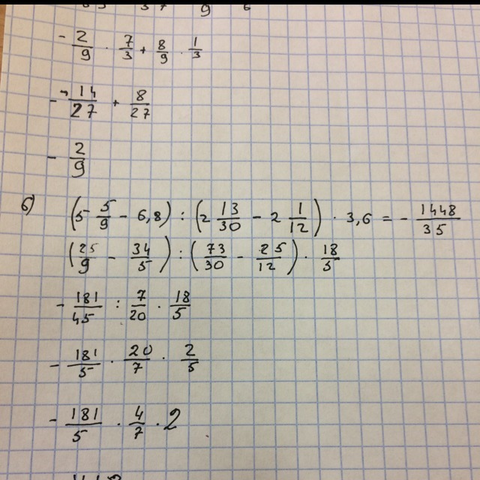 - 2/9 · 7/3 + 8/9 · 1/3
- 14/27 + 8/27
- 2/9
б) (5 - 5/9 - 6,8) : (2 13/30 - 2 1/12) · 3,6 = - 1448/35
(25/9 - 34/5) : (73/30 - 25/12) · 18/5
- 181/45 : 7/20 · 18/5
- 181/5 · 20/7 · 2/5
- 181/5 · 4/7 · 2